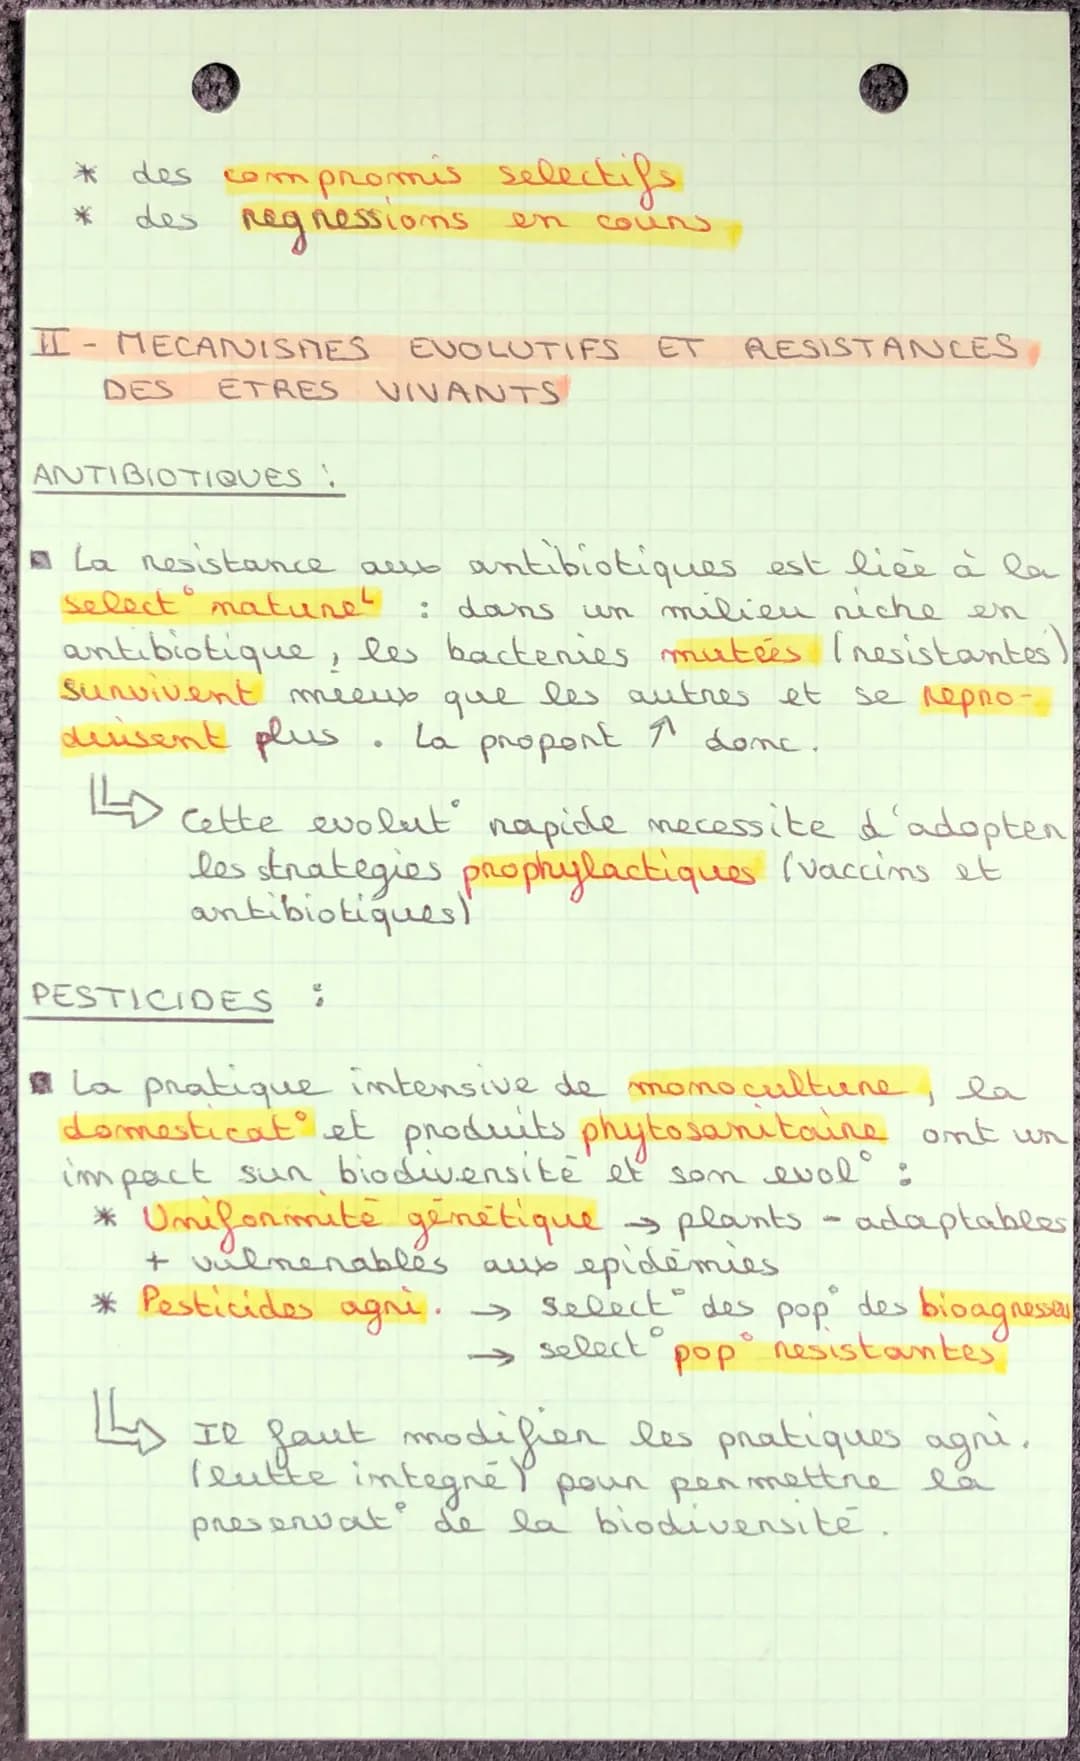 * des compromis selectifs
* des regressions en cours
II - MECANISMES EVOLUTIFS ET RESISTANCES
DES ETRES VIVANTS
ANTIBIOTIQUES :
▪ La resistance aux antibiotiques est liée à la
select° naturel : dans un milieu riche en
antibiotique, les bacteries mutées (resistantes)
survivent mieux que les autres et se repro-
duisent plus. La proport ↑ donc.
↳ Cette evolut° rapide necessite d'adopter
les strategies prophylactiques (vaccins et
antibiotiques)
PESTICIDES :
▪ La pratique intensive de monoculture, la
domesticat° et produits phytosanitaire ont un
impact sur biodiversité et son evol° :
* Uniformité génétique → plants - adaptables
+ vulnerables aux epidémies
* Pesticides agri. → select° des pop° des bioagresseu
→ select° pop° resistantes
↳ Il faut modifier les pratiques agri.
(lutte integré) pour permettre la
preservat° de la biodiversité.